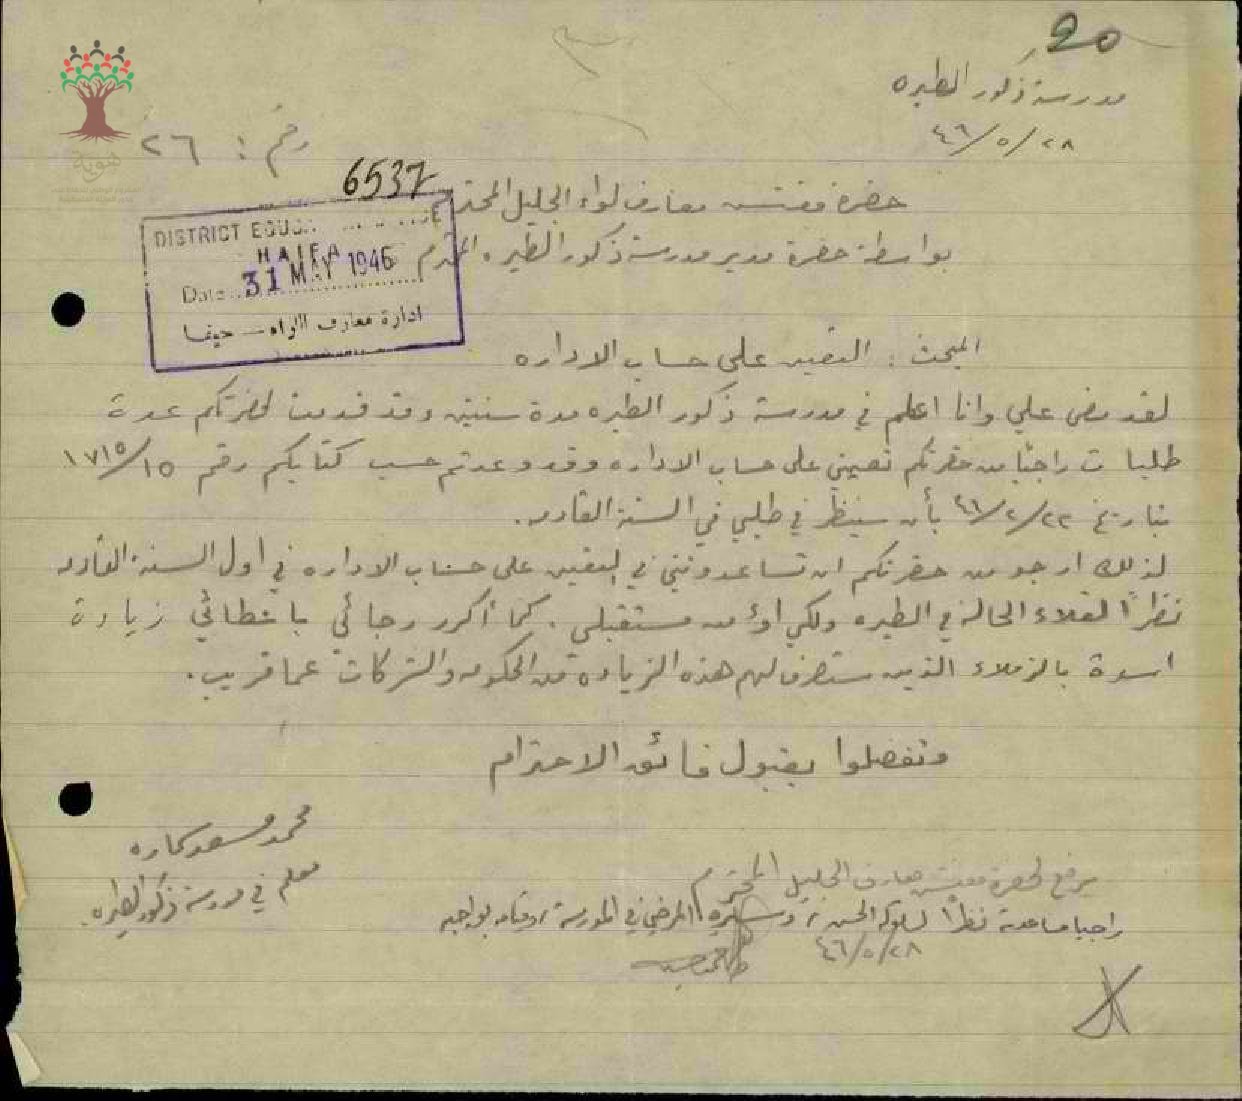 20
مدرسة ذكور الطيره
٤٦/٥/٢٨
رقم : ٢٦
هوية
6537
حضرة مفتش معارف لواء الجليل المحترم
بواسطة حضرة مدير مدرسة ذكور الطيره المحترم
DISTRICT EDUC
HAIFA
Date 31 MAY 1946
ادارة معارف اللواء — حيفا
المبحث : التعيين على حساب الاداره
لقد مضى علي وانا اعلم في مدرسة ذكور الطيره مدة سنتين وقد قدمت لحضرتكم عدة
طلبات راجيًا من حضرتكم تعييني على حساب الاداره وقد وعدتم حسب كتابكم رقم ١٧١٥/١٥
بتاريخ ٤٦/٢/٢٢ بأن سينظر في طلبي في السنة القادمه.
لذلك ارجو من حضرتكم ان تساعدونني في التعيين على حساب الاداره في اول السنة القادمه
نظرًا لغلاء الحالة في الطيره ولكي اؤمن مستقبلي . كما أكرر رجائي باعطائي زيادة
اسوة بالزملاء الذين ستصرف لهم هذه الزياده من الحكومه والشركات عما قريب.
وتفضلوا بقبول فائق الاحترام
محمد مسعود
معلم في مدرسة ذكور الطيره
يرفع لحضرة مفتش معارف الجليل المحترم
راجيا مساعدته نظرًا لسلوكه الحسن، وسيره المرضي في المدرسة، وقيامه بواجبه
٤٦/٥/٢٨